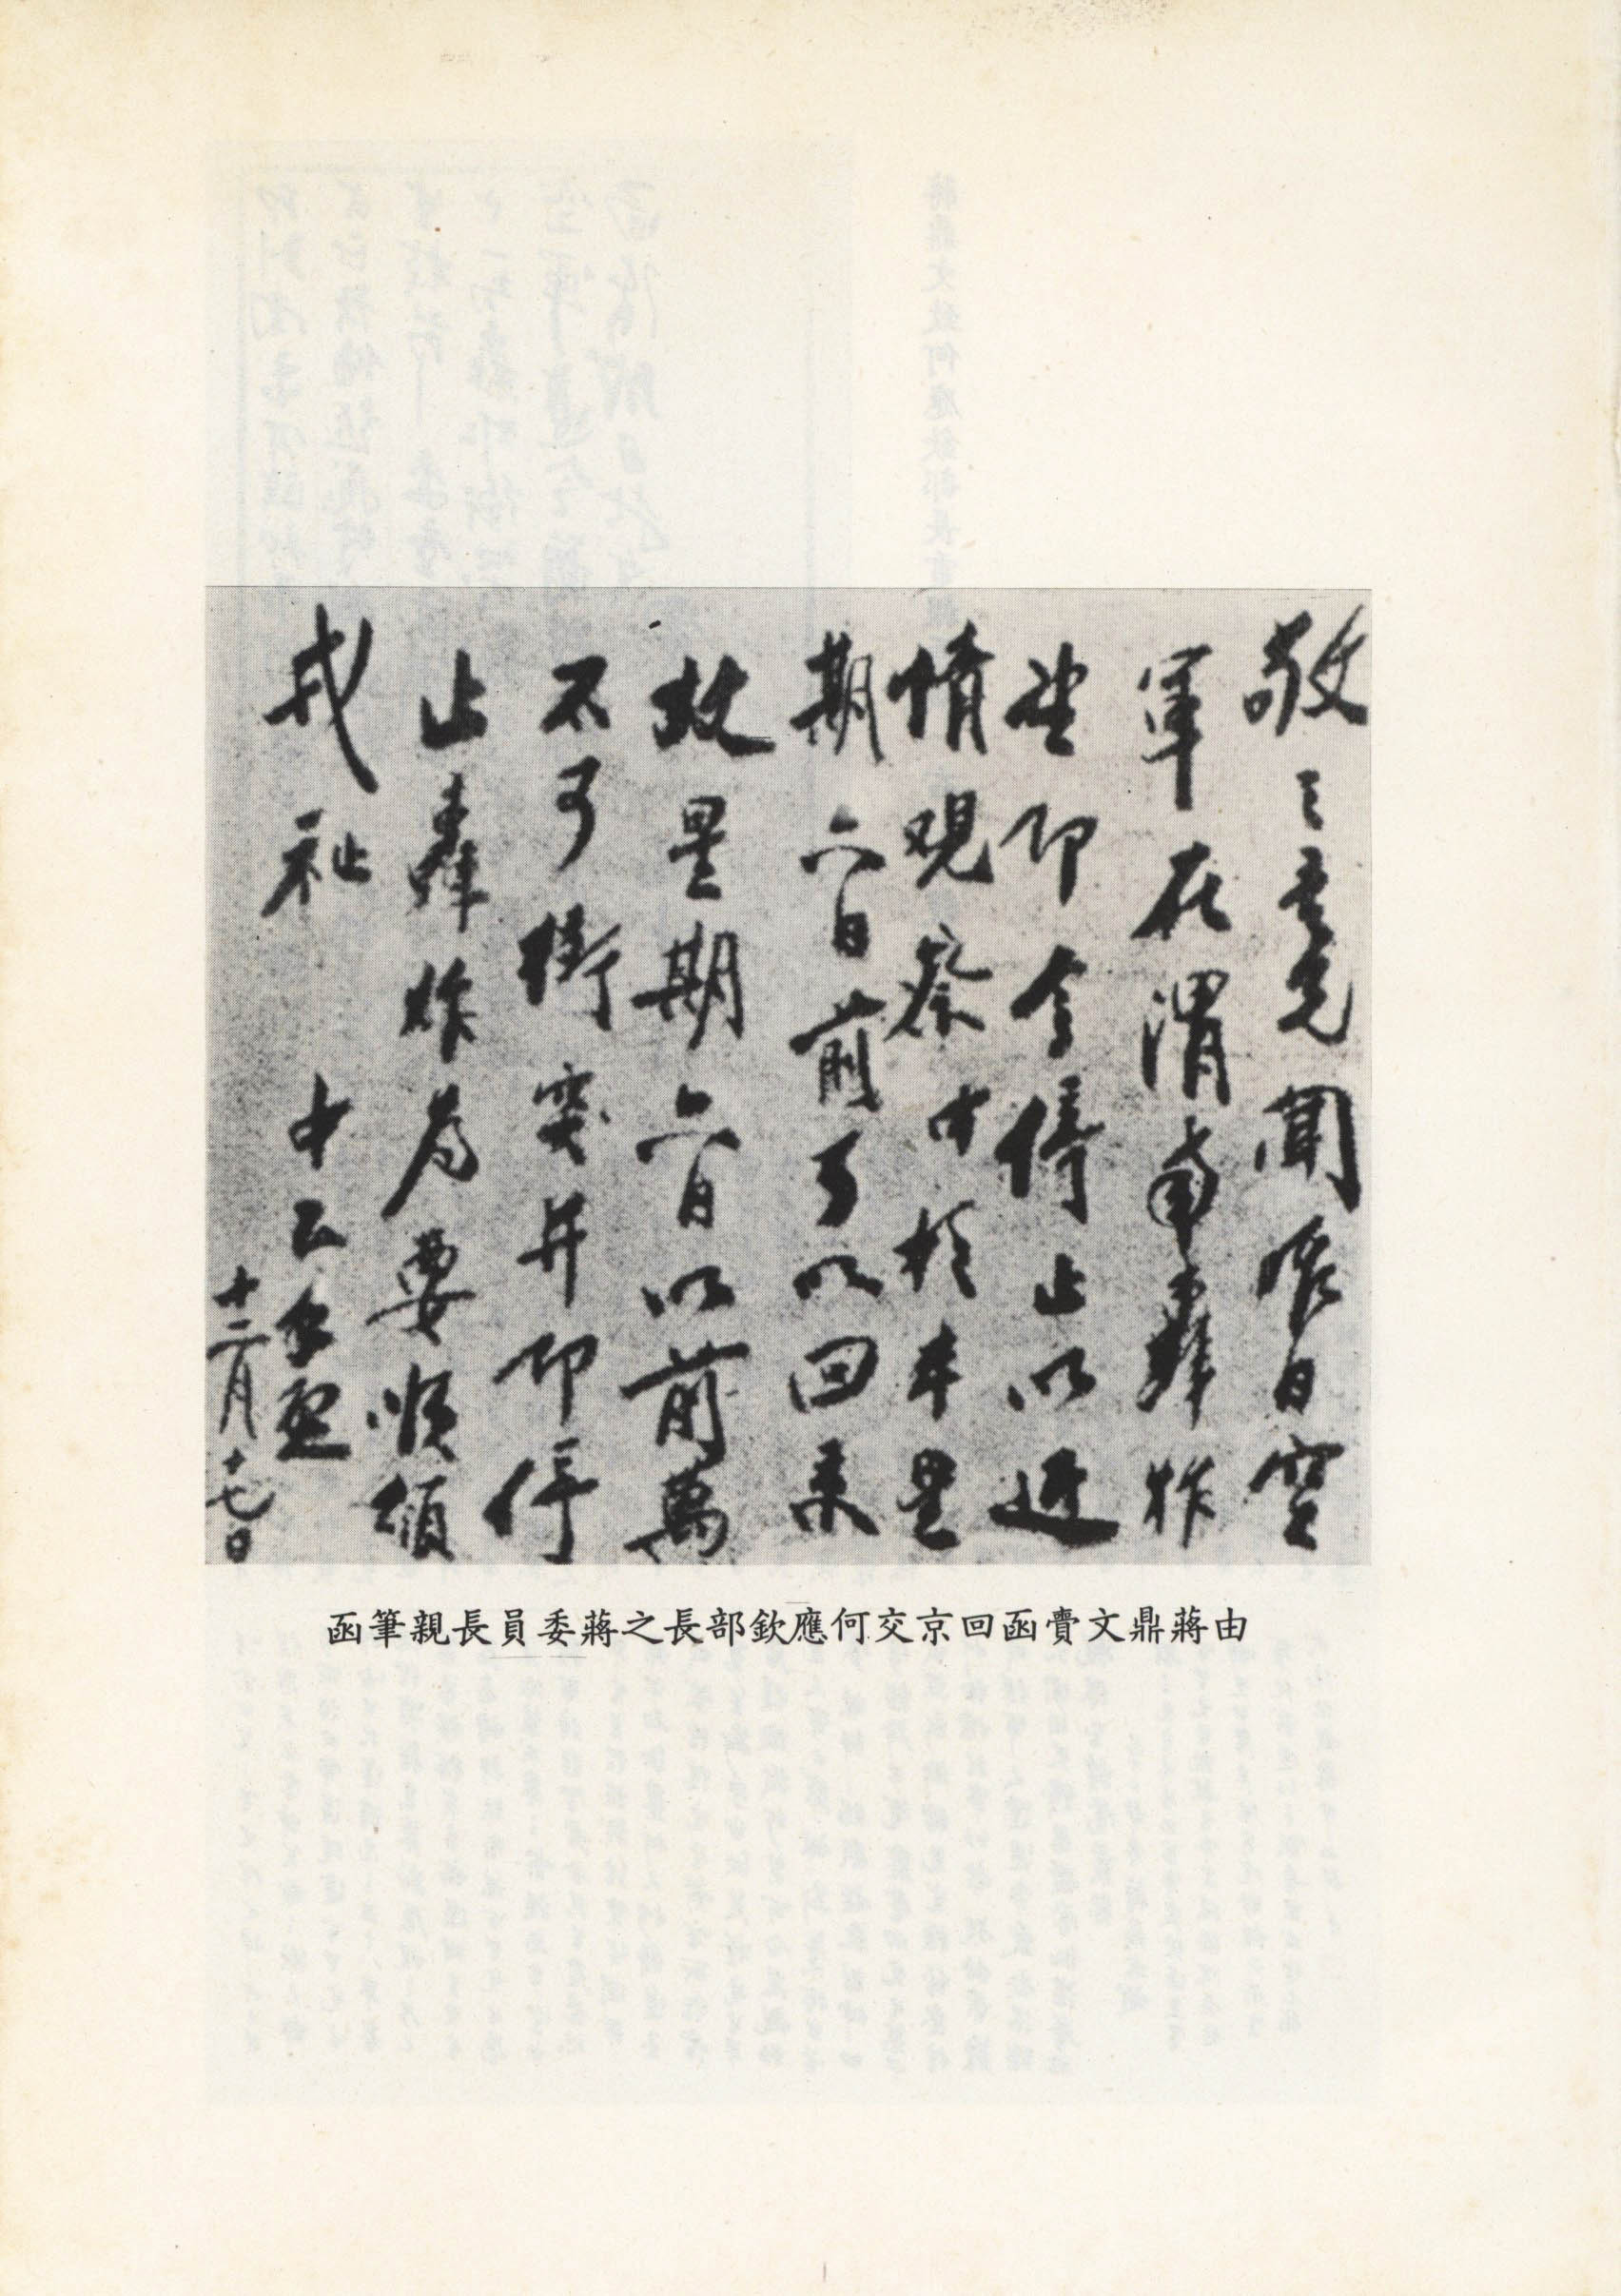 敬之吾兄聞昨日空
軍在渭南轟炸
望即令停止以近
情觀察中於本星
期六日前可以回来
故星期六日以前萬
不可衝突并即停
止轟炸為要順頌
戎祉 中正手啟
十二月十七日
由蔣鼎文賫函回京交何應欽部長之蔣委員長親筆函